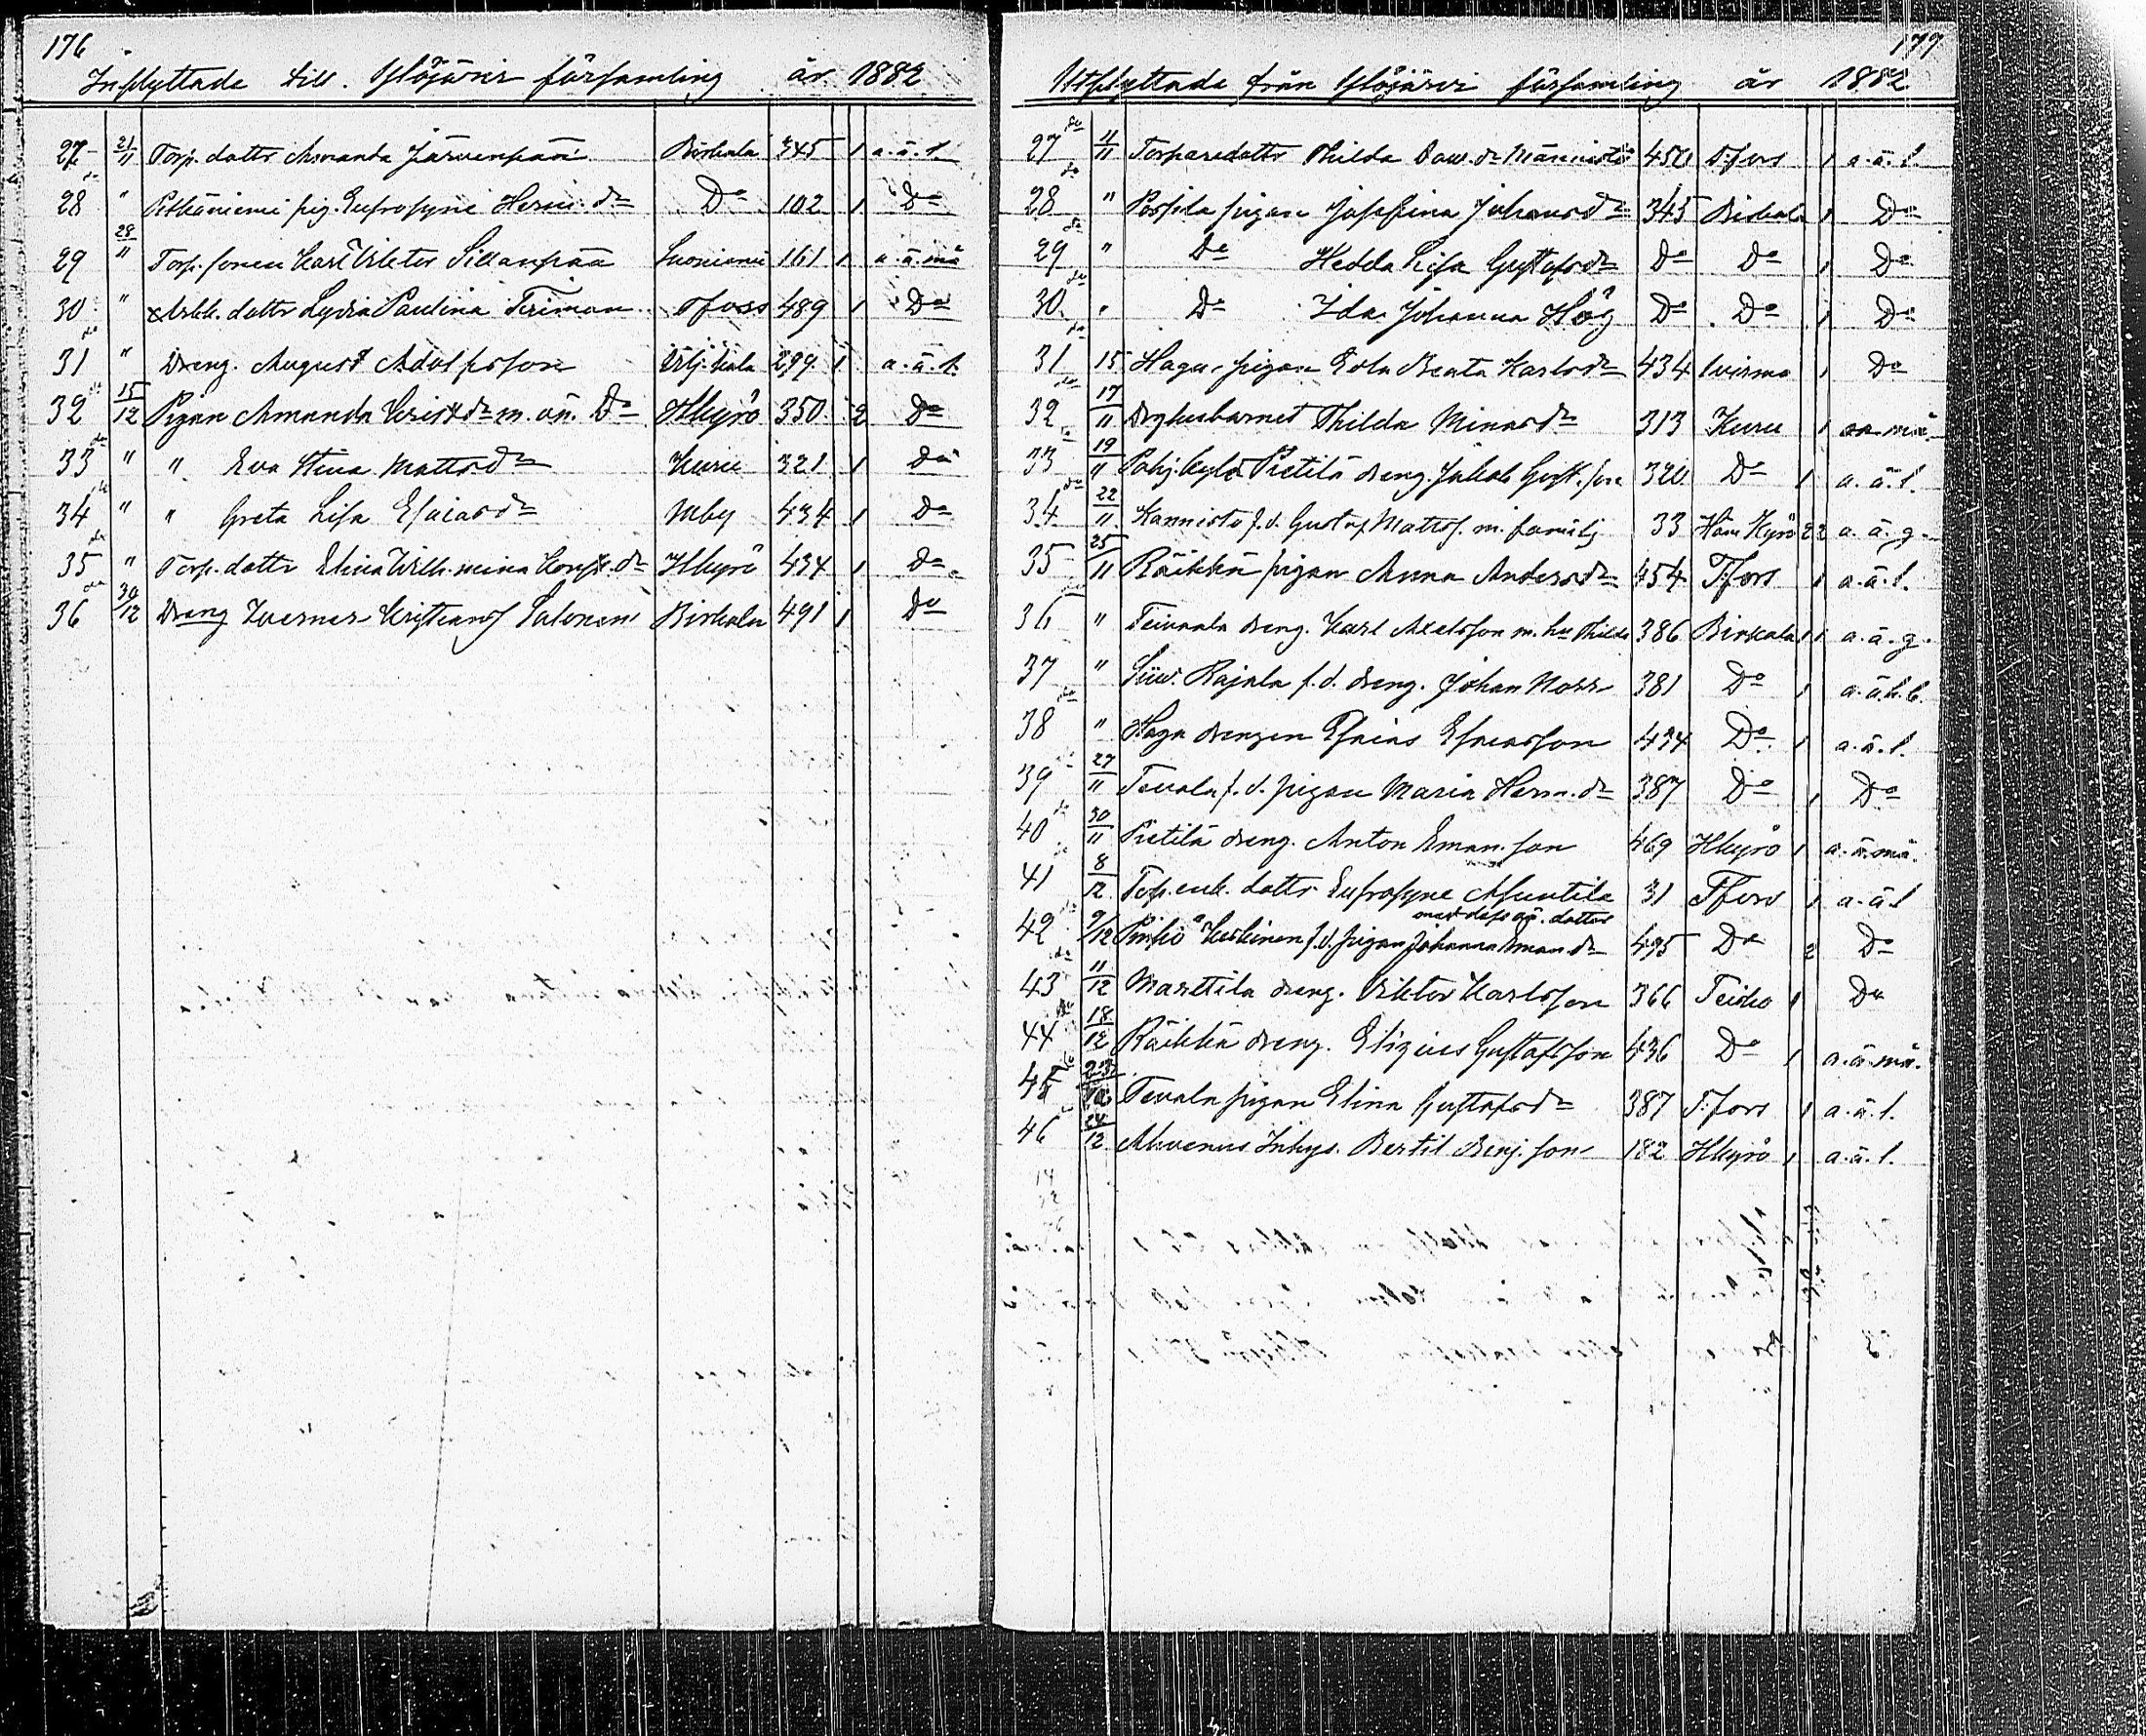 176
Inflyttade till Ylöjärvi församling år 1882
27 21/11 Torp. dottr Amanda Järvenpää Birkala 345 1 a.ä.l.
28 " Pitkäniemi pig. Eufrosyne Herm. dr Do 102 1 Do
29 28/11 Torp. sonen Karl Viktor Sillanpää Suoniemi 161 1 a.ä.må
30 " dottr Lydia Paulina Tfors 489 1 Do
31 " Dreng. August Adolfsson 299 1 a.ä.l.
32 15/12 Pigan Amanda Krist. dr m. oä. Do Hkyrö 350 2 Do
33 " " Eva Stina Mattsdr Kuru 321 1 Do
34 " " Greta Lisa Esaiasdr Mby 434 1 Do
35 " Torp. dottr Elina Wilh.mina dr Hkyrö 434 1 Do
36 30/12 Dreng Kristians. Salonen Birkala 491 1 Do
177
Utflyttade från Ylöjärvi församling år 1882
27 11/11 Torparedottr Thilda Dav. dr Männistö 450 Tfors 1 a.ä.l.
28 " pigan Josefina Johansdr 345 Birkala 1 Do
29 " Do Hedda Lisa Gustafsdr Do Do 1 Do
30 " Do Ida Johanna Hög Do Do 1 Do
31 15 Haga pigan Eva Beata Karlsdr 434 1 Do
32 17/11 Thilda Minasdr 313 Kuru 1
33 19/11 Pohj. kylä Pietilä dreng. Jakob Gust. son 320 Do 1 a.ä.l.
34 22/11 Kannisto f.d. Gustaf Mattss. m. familj 33 Häm Kyrö 2 2 a.ä.g.
35 25/11 Räikkä pigan Anna Andersdr 454 Tfors 1 a.ä.l.
36 " Teivaala dreng. Karl Axelsson m. hu Thilda 386 Birkala 1 1 a.ä.g.
37 " Rajala f.d. dreng. Johan 381 Do 1
38 " Haga drengen Esaias Esaiasson 434 Do 1 a.ä.l.
39 27/11 f.d. pigan Maria Herm. dr 387 Do 1 Do
40 30/11 Pietilä dreng. Anton Eman. son 469 Hkyrö 1 a.ä.må.
41 8/12 Torp. enk. dottr Eufrosyne 31 Tfors 1 a.ä.l
med dess oä. dotter
42 9/12 f.d. pigan Johanna Eman. dr 495 Do 2 Do
43 11/12 Marttila dreng. Viktor Karlsson 366 Teisko 1 Do
44 18/12 Räikkä dreng. Eligius Gustafsson 436 Do 1 a.ä.må.
45 23/12 pigan Elina Gustafsdr 387 Tfors 1 a.ä.l.
46 12 Ahvenus Inhys. Bertil Benj. son 182 Hkyrö 1 a.ä.l.